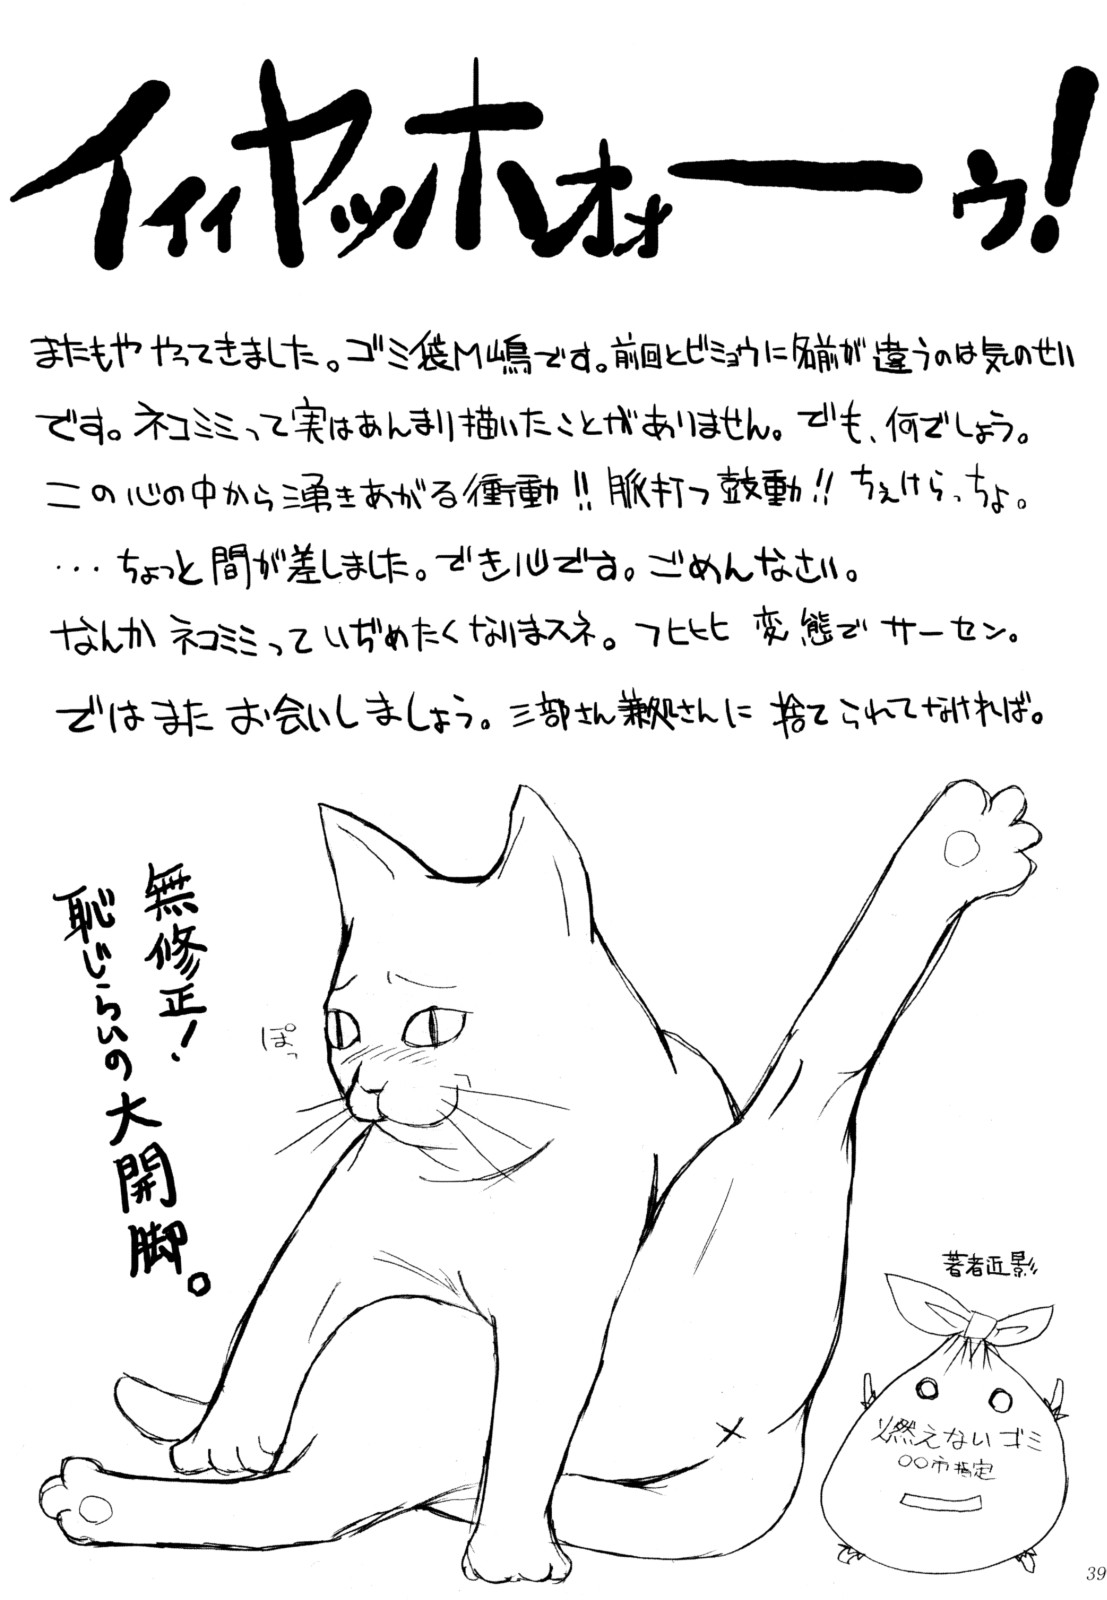 イィィヤッホォオォーーゥ!
またもややってきました。ゴミ袋M嶋です。前回とビミョウに名前が違うのは気のせい
です。ネコミミって実はあんまり描いたことがありません。でも、何でしょう。
この心の中から湧きあがる衝動!!脈打つ鼓動!!ちぇけらっちょ。
・・・ちょっと間が差しました。でき心です。ごめんなさい。
なんかネコミミっていぢめたくなりまスネ。フヒヒヒ 変態でサーセン。
ではまたお会いしましょう。三部さん兼処さんに捨てられてなければ。
無修正!
恥じらいの大開脚。
ぽっ
著者近影
燃えないゴミ
○○市指定
39